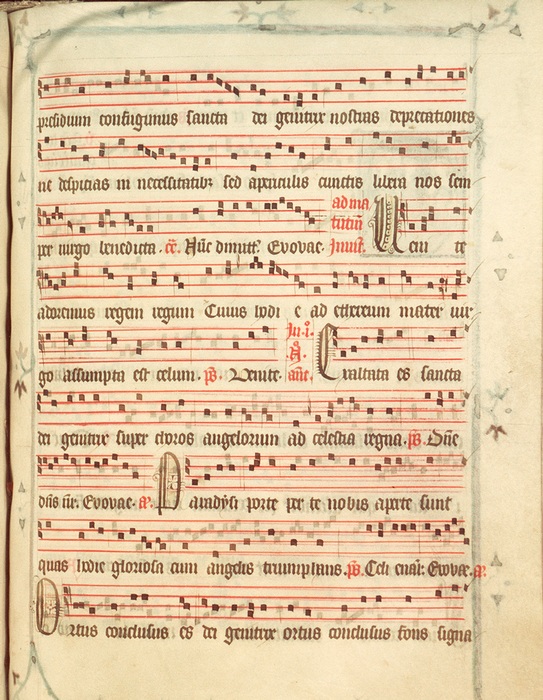 presidium confugimus sancta dei genitrix nostras deprecationes
ne despicias in necessitatibꝫ sed a periculis cunctis libera nos sem
ad ma
tutin
Inuit.
per uirgo benedicta. cc̄. Nūc dimitt. Evovae. Ueni te
adoremus regem regum Cuius hodi e ad ethereum mater uir
In .i.
N̊.
ant.
go assumpta est celum. ps̄. Venite. Exaltata es sancta
dei genitrix super choros angelorum ad celestia regna. ps̄. Dn̄e
dn̄s nr̄. Evovae. a. Paradysi porte per te nobis aperte sunt
quas hodie gloriosa cum angelis triumphans. ps̄. Celi enar̄. Evovae. a.
Ortus conclusus es dei genitrix ortus conclusus fons signa